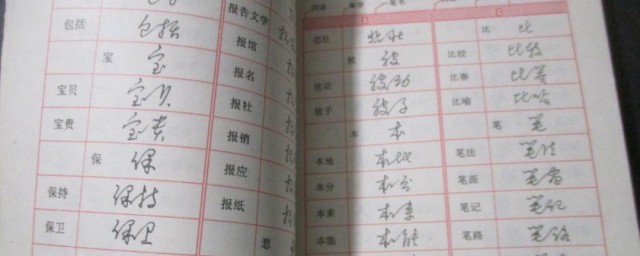 包括 包括
宝 宝
宝贝 宝贝
宝贵 宝贵
保 保
保持 保持
保卫 保卫
报告文学
报馆
报名
报社
报销
报应
报纸
悲
B
悲壮 悲壮
被 被
被动 被动
被子 被子
本 本
本地 本地
本分 本分
本来 本来
本能 本能
比 比
比较 比较
比赛 比赛
比喻 比喻
笔 笔
笔法 笔法
笔画 笔画
笔记 笔记
笔路 笔路